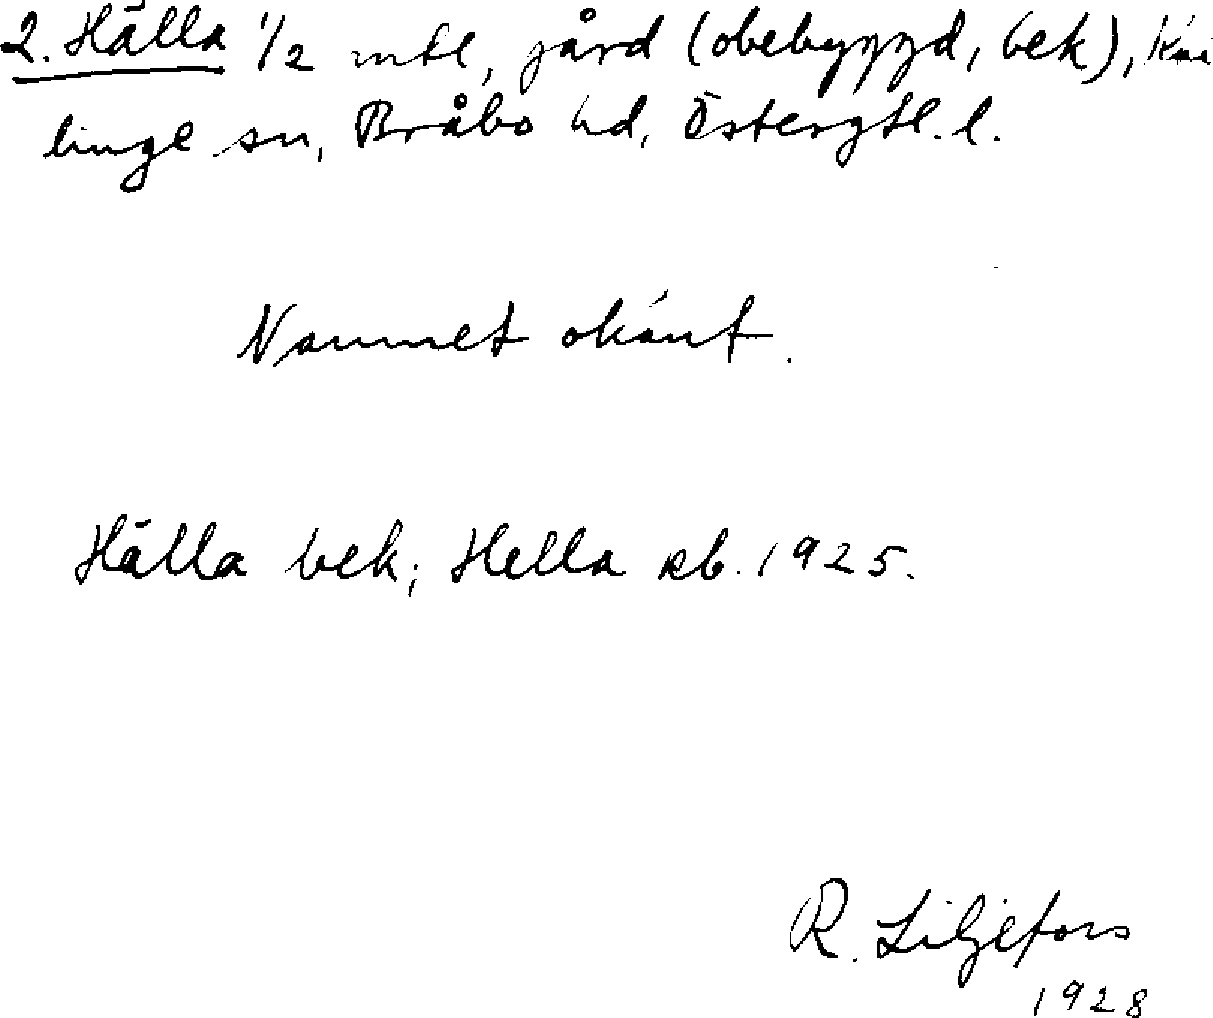 2. Hälla 1/2 mtl, gård (obebyggd, bek), Kvil
linge sn, Bråbo hd, Östergtl. l.
Namnet okänt.
Hälla bek; Hella rb. 1925.
R. Liljefors
1928